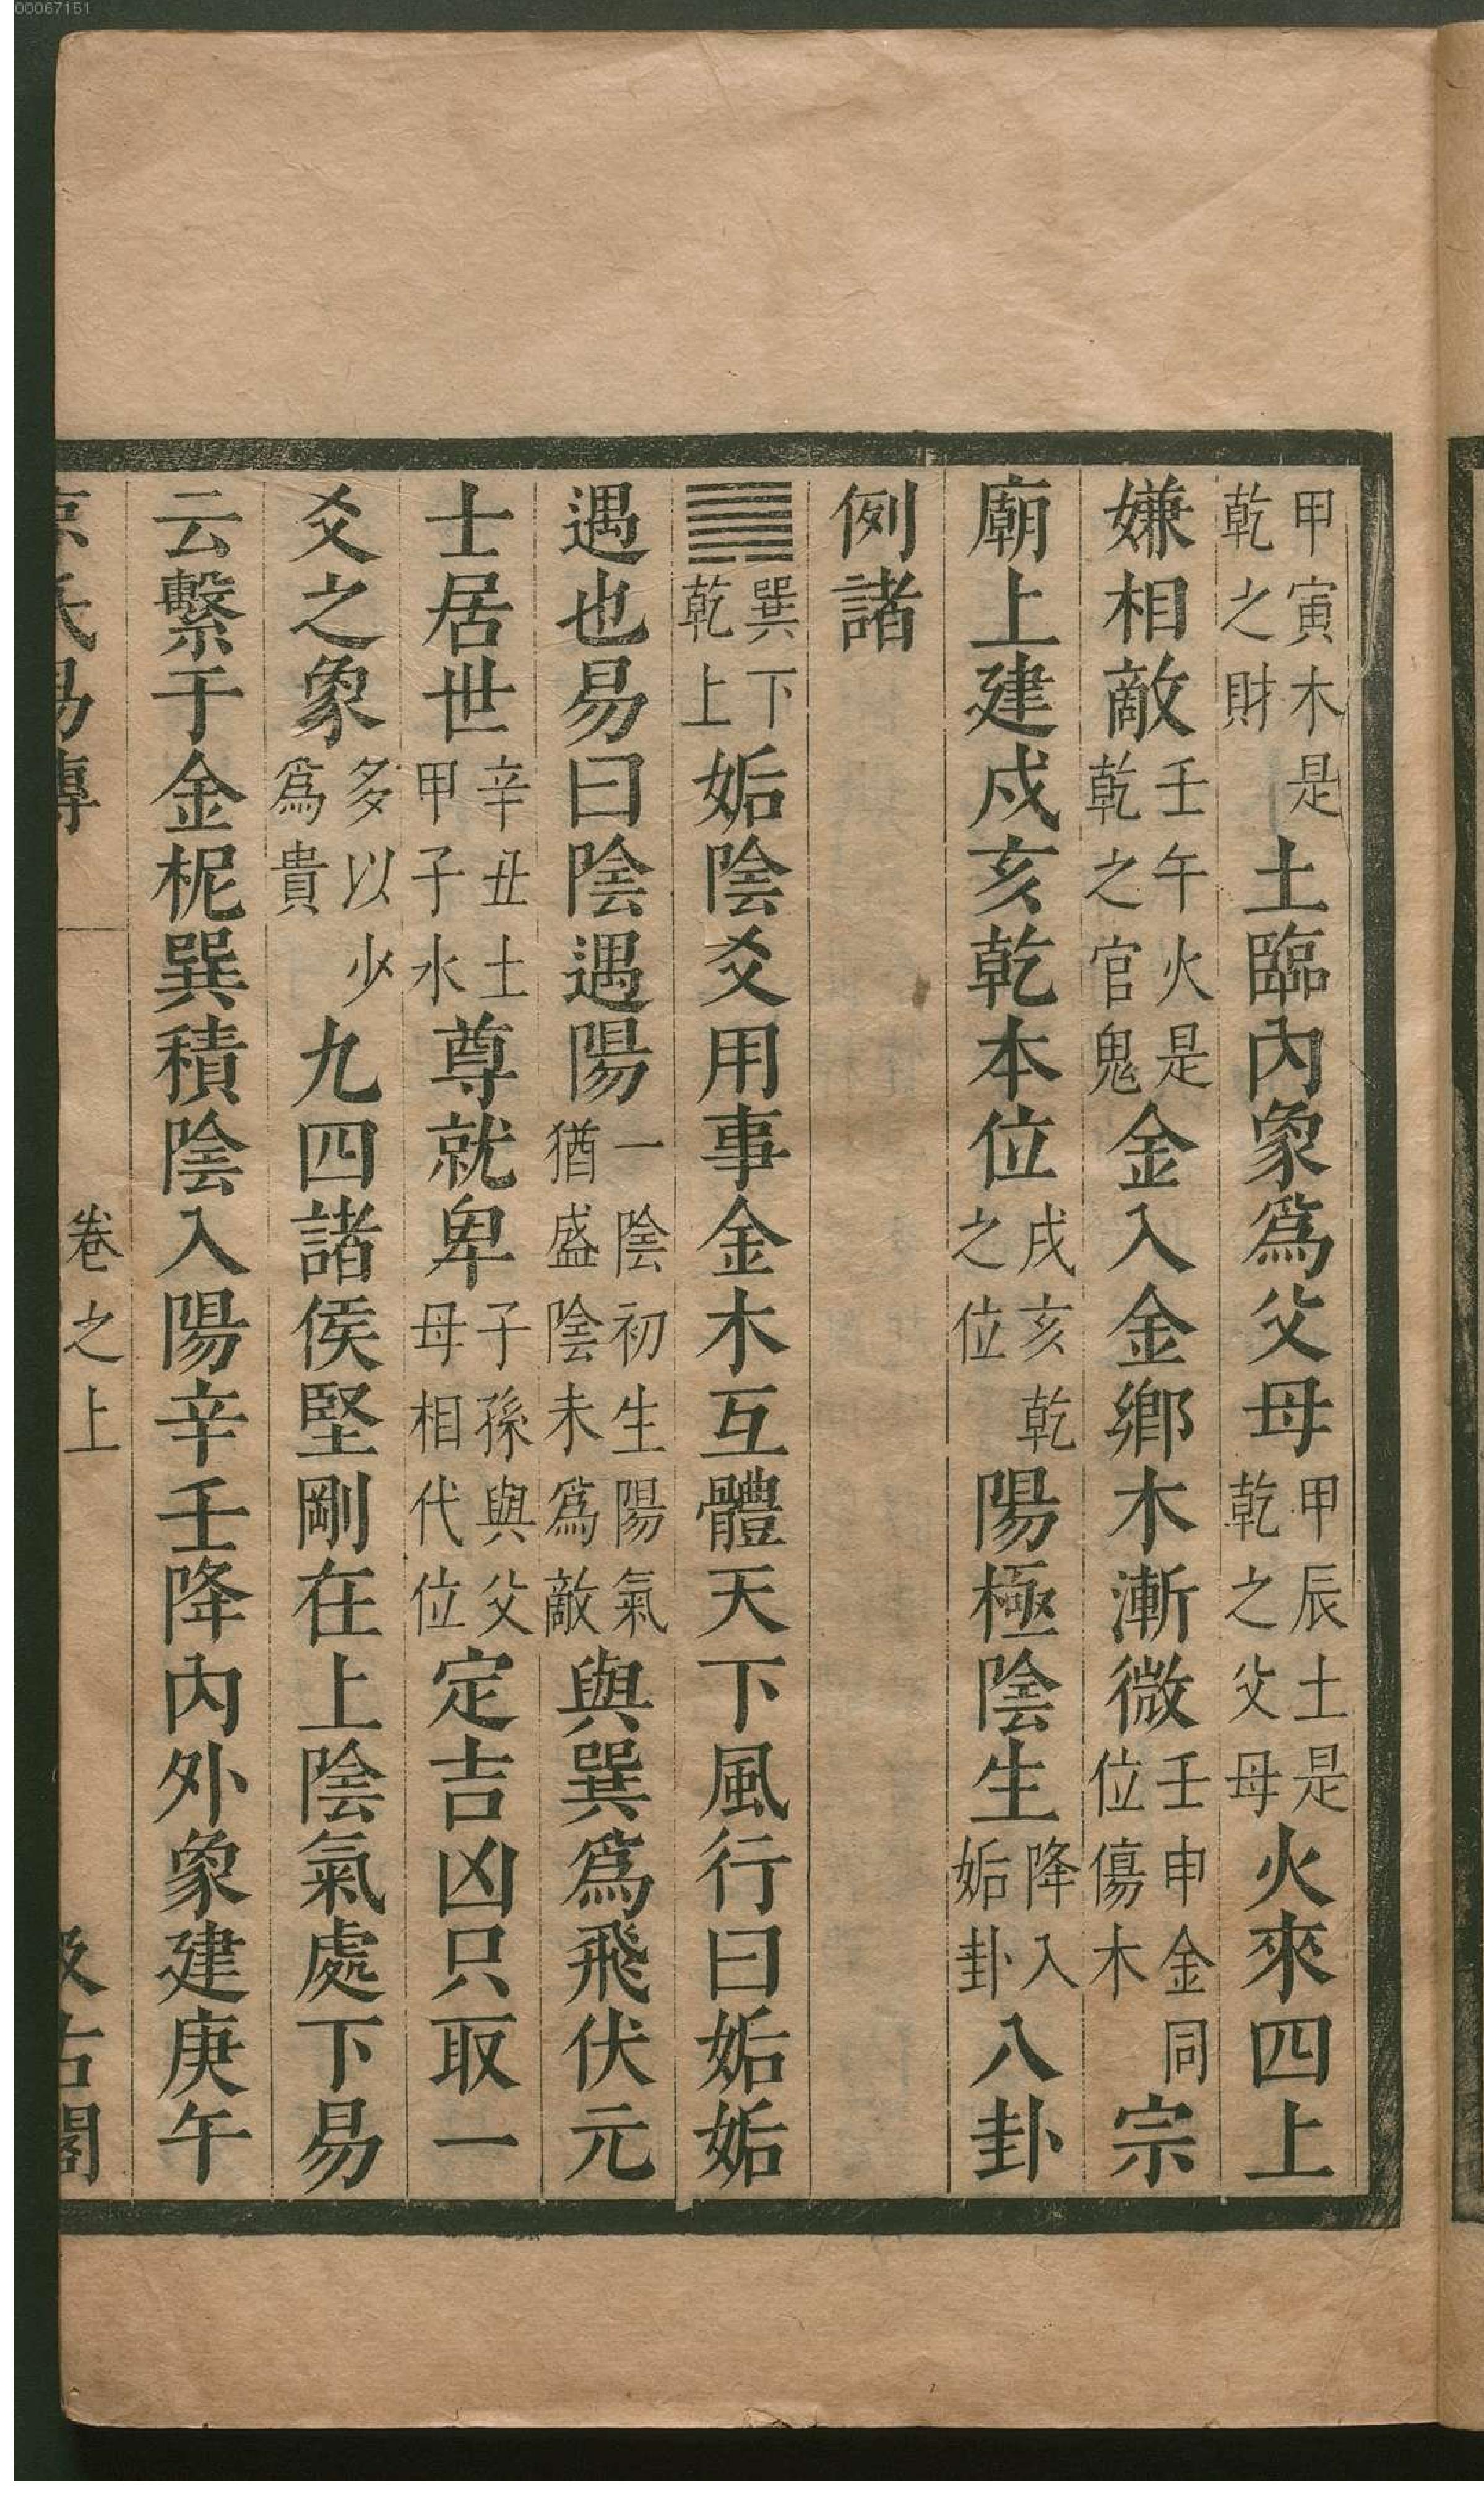 00067151
甲寅木是乾之財土臨內象爲父母甲辰土是乾之父母火來四上
嫌相敵壬午火是乾之官鬼金入金鄉木漸微壬申金同位傷木宗
廟上建戍亥乾本位戌亥乾之位陽極陰生降入姤卦八卦
例諸
䷫巽下乾上姤陰爻用事金木互體天下風行曰姤姤
遇也易曰陰遇陽一陰初生陽氣猶盛陰未爲敵與巽爲飛伏元
士居世辛丑土甲子水尊就卑子孫與父母相代位定吉凶只取一
爻之象多以少爲貴九四諸侯堅剛在上陰氣處下易
云繫于金柅巽積陰入陽辛壬降內外象建庚午
京氏易傳 卷之上 汲古閣